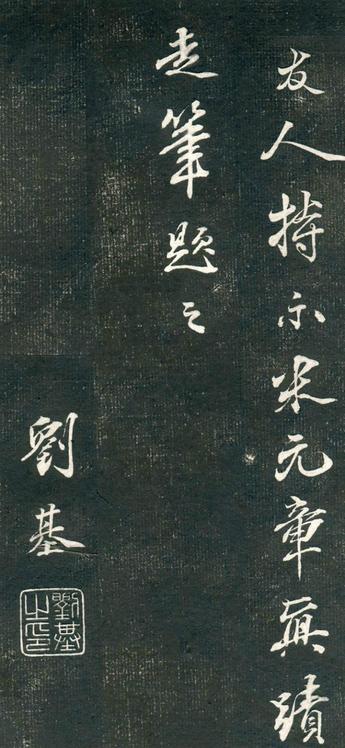 友人持示米元章真蹟
走筆題之
劉基
劉基之印